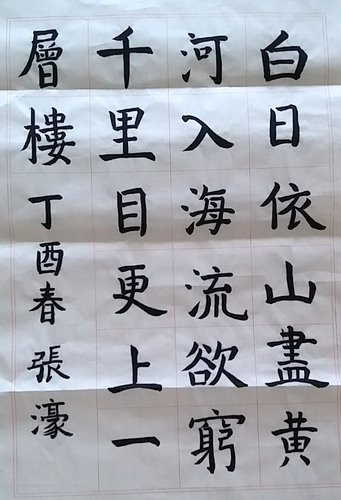 白日依山盡黃
河入海流欲窮
千里目更上一
層樓丁酉春張濠